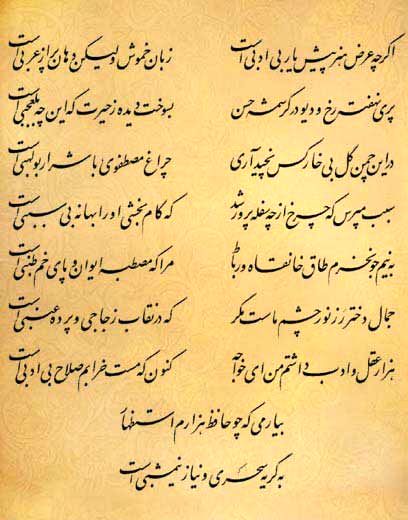 اگرچه عرض هنر پیش یار بی ادبی است زبان خموش ولیکن دهان پر از عربی است
پری نهفت رخ و دیو در کرشمه حسن بسوخت دیده ز حیرت که این چه بلعجبی است
در این چمن گل بی خار کس نچید آری چراغ مصطفوی با شرار بولهبی است
سبب مپرس که چرخ از چه سفله پرور شد که کام بخشی او را بهانه بی سببی است
به نیم جو نخرم طاق خانقاه و رباط مرا که مصطبه ایوان و پای خم طنبی است
جمال دختر رز نور چشم ماست مگر که در نقاب زجاجی و پرده عنبی است
هزار عقل و ادب داشتم من ای خواجه کنون که مست خرابم صلاح بی ادبی است
بیار می که چو حافظ هزارم استظهار
به گریه سحری و نیاز نیمشبی است